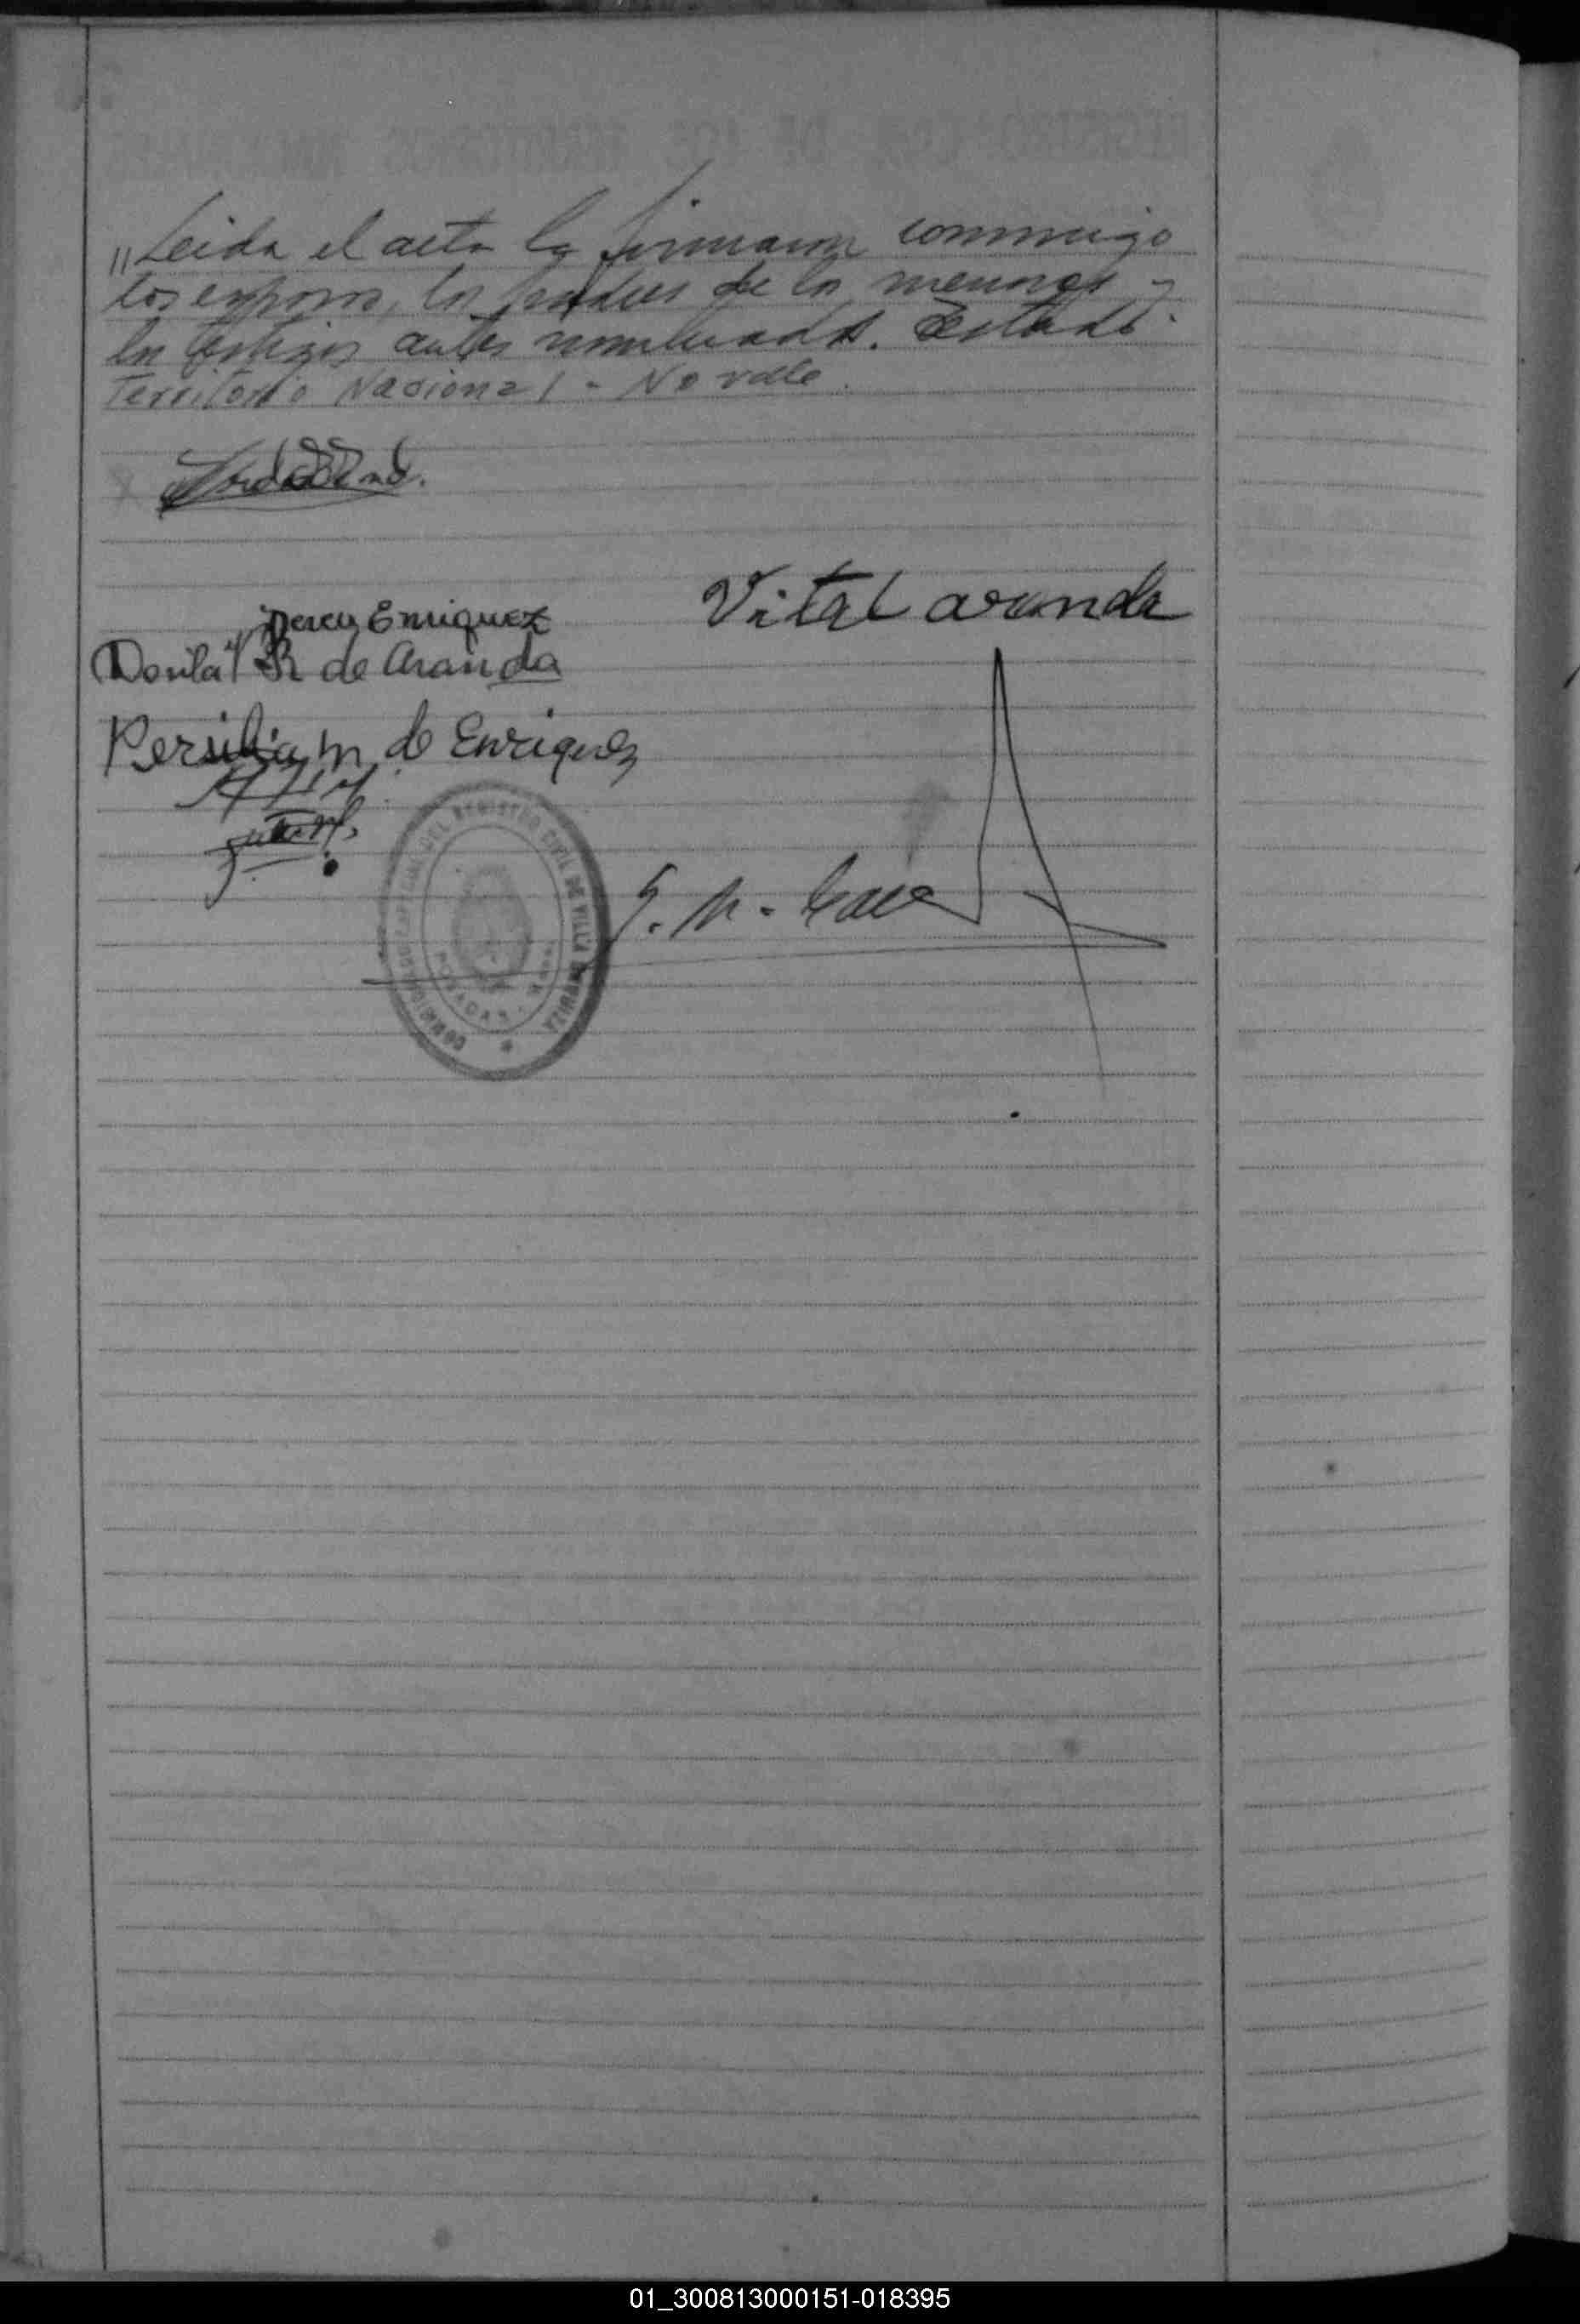 "Leida el acta la firmaron conmigo
los esposos, los padres de los menores y
los testigos antes nombrados. Estado.
Territorio Nacional - No vale.
Vital aranda
Dercy Enriquez
Donila R de Aranda
Persilia m de Enriquez
DEL REGISTRO CIVIL DE VILLA
POSADAS
01_300813000151-018395